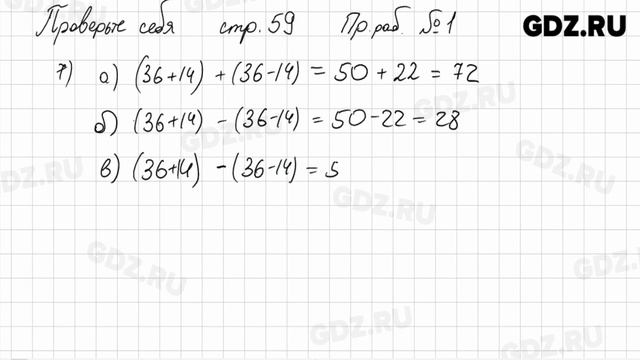 Проверьте себя стр. 59 Пр. раб. №1
GDZ.RU
7) а) (36+14) + (36-14) = 50 + 22 = 72
б) (36+14) - (36-14) = 50-22 = 28
в) (36+14) - (36-14) = 5
GDZ.RU
GDZ.RU
GDZ.RU
GDZ.RU
GDZ.RU
GDZ.RU
GDZ.RU